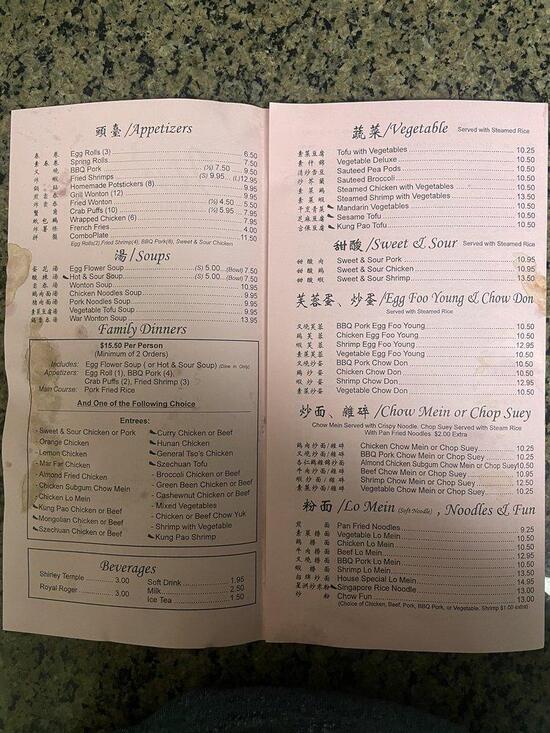 頭臺/Appetizers
春卷 Egg Rolls (3) 6.50
素春卷 Spring Rolls 7.50
叉燒 BBQ Pork (½) 7.50 9.50
炸蝦 Fried Shrimps (S) 9.95 (L)12.95
鍋貼 Homemade Potstickers (8) 9.95
Grill Wonton (12) 9.95
炸雲吞 Fried Wonton (½) 4.50 5.50
蟹角 Crab Puffs (10) (½) 5.95 7.95
紙包鷄 Wrapped Chicken (6) 7.95
炸薯條 French Fries 4.00
拼盤 ComboPlate 11.50
Egg Rolls(2),Fried Shrimp(4), BBQ Pork(8), Sweet & Sour Chicken
湯/Soups
蛋花湯 Egg Flower Soup (S) 5.00 (Bowl) 7.50
酸辣湯 Hot & Sour Soup (S) 5.00 (Bowl) 7.50
雲吞湯 Wonton Soup 10.95
鷄肉麵湯 Chicken Noodles Soup 9.95
猪肉麵湯 Pork Noodles Soup 9.95
素菜豆腐湯 Vegetable Tofu Soup 9.95
窩雲吞湯 War Wonton Soup 13.95
Family Dinners
$15.50 Per Person
(Minimum of 2 Orders)
Includes: Egg Flower Soup ( or Hot & Sour Soup) (Dine in Only)
Appetizers: Egg Roll (1), BBQ Pork (4),
Crab Puffs (2), Fried Shrimp (3)
Main Course: Pork Fried Rice
And One of the Following Choice
Entrees:
- Sweet & Sour Chicken or Pork
- Orange Chicken
- Lemon Chicken
- Mar Far Chicken
- Almond Fried Chicken
- Chicken Subgum Chow Mein
- Chicken Lo Mein
Kung Pao Chicken or Beef
Mongolian Chicken or Beef
Szechuan Chicken or Beef
Curry Chicken or Beef
Hunan Chicken
General Tso's Chicken
Szechuan Tofu
- Broccoli Chicken or Beef
- Green Bean Chicken or Beef
- Cashewnut Chicken or Beef
- Mixed Vegetables
- Chicken or Beef Chow Yuk
- Shrimp with Vegetable
Kung Pao Shrimp
Beverages
Shirley Temple 3.00
Royal Roger 3.00
Soft Drink 1.95
Milk 2.50
Ice Tea 1.50
蔬菜/Vegetable Served with Steamed Rice
素菜豆腐 Tofu with Vegetables 10.25
素什錦 Vegetable Deluxe 10.50
清炒雪豆 Sauteed Pea Pods 10.50
炒芥蘭 Sauteed Broccoli 10.50
素菜鷄 Steamed Chicken with Vegetables 10.50
素菜蝦 Steamed Shrimp with Vegetables 13.50
干烹青菜 Mandarin Vegetables 10.50
芝麻豆腐 Sesame Tofu 10.50
宫保豆腐 Kung Pao Tofu 10.50
甜酸/Sweet & Sour Served with Steamed Rice
甜酸肉 Sweet & Sour Pork 10.95
甜酸鷄 Sweet & Sour Chicken 10.95
甜酸蝦 Sweet & Sour Shrimp 13.50
芙蓉蛋、炒蛋/Egg Foo Young & Chow Don
Served with Steamed Rice
叉燒芙蓉 BBQ Pork Egg Foo Young 10.50
鷄芙蓉 Chicken Egg Foo Young 10.50
蝦芙蓉 Shrimp Egg Foo Young 12.95
素菜芙蓉 Vegetable Egg Foo Young 10.50
叉燒炒蛋 BBQ Pork Chow Don 10.50
鷄炒蛋 Chicken Chow Don 10.50
蝦炒蛋 Shrimp Chow Don 12.95
素菜炒蛋 Vegetable Chow Don 10.50
炒面、雜碎/Chow Mein or Chop Suey
Chow Mein Served with Crispy Noodle. Chop Suey Served with Steam Rice
With Pan Fried Noodles $2.00 Extra
鷄肉炒面/雜碎 Chicken Chow Mein or Chop Suey 10.25
叉燒炒面/雜碎 BBQ Pork Chow Mein or Chop Suey 10.25
杏仁鷄粒炒面/雜碎 Almond Chicken Subgum Chow Mein or Chop Suey 10.50
牛肉炒面/雜碎 Beef Chow Mein or Chop Suey 10.50
蝦炒面/雜碎 Shrimp Chow Mein or Chop Suey 12.50
素菜炒面/雜碎 Vegetable Chow Mein or Chop Suey 10.25
粉面/Lo Mein (Soft Noodle), Noodles & Fun
煎面 Pan Fried Noodles 9.25
素菜撈面 Vegetable Lo Mein 10.50
鷄撈面 Chicken Lo Mein 10.50
牛肉撈面 Beef Lo Mein 12.95
叉燒撈面 BBQ Pork Lo Mein 10.50
蝦撈面 Shrimp Lo Mein 13.50
招牌炒面 House Special Lo Mein 14.95
星洲炒米粉 Singapore Rice Noodle 13.00
炒粉 Chow Fun 13.00
(Choice of Chicken, Beef, Pork, BBQ Pork, or Vegetable, Shrimp $1.00 extra)